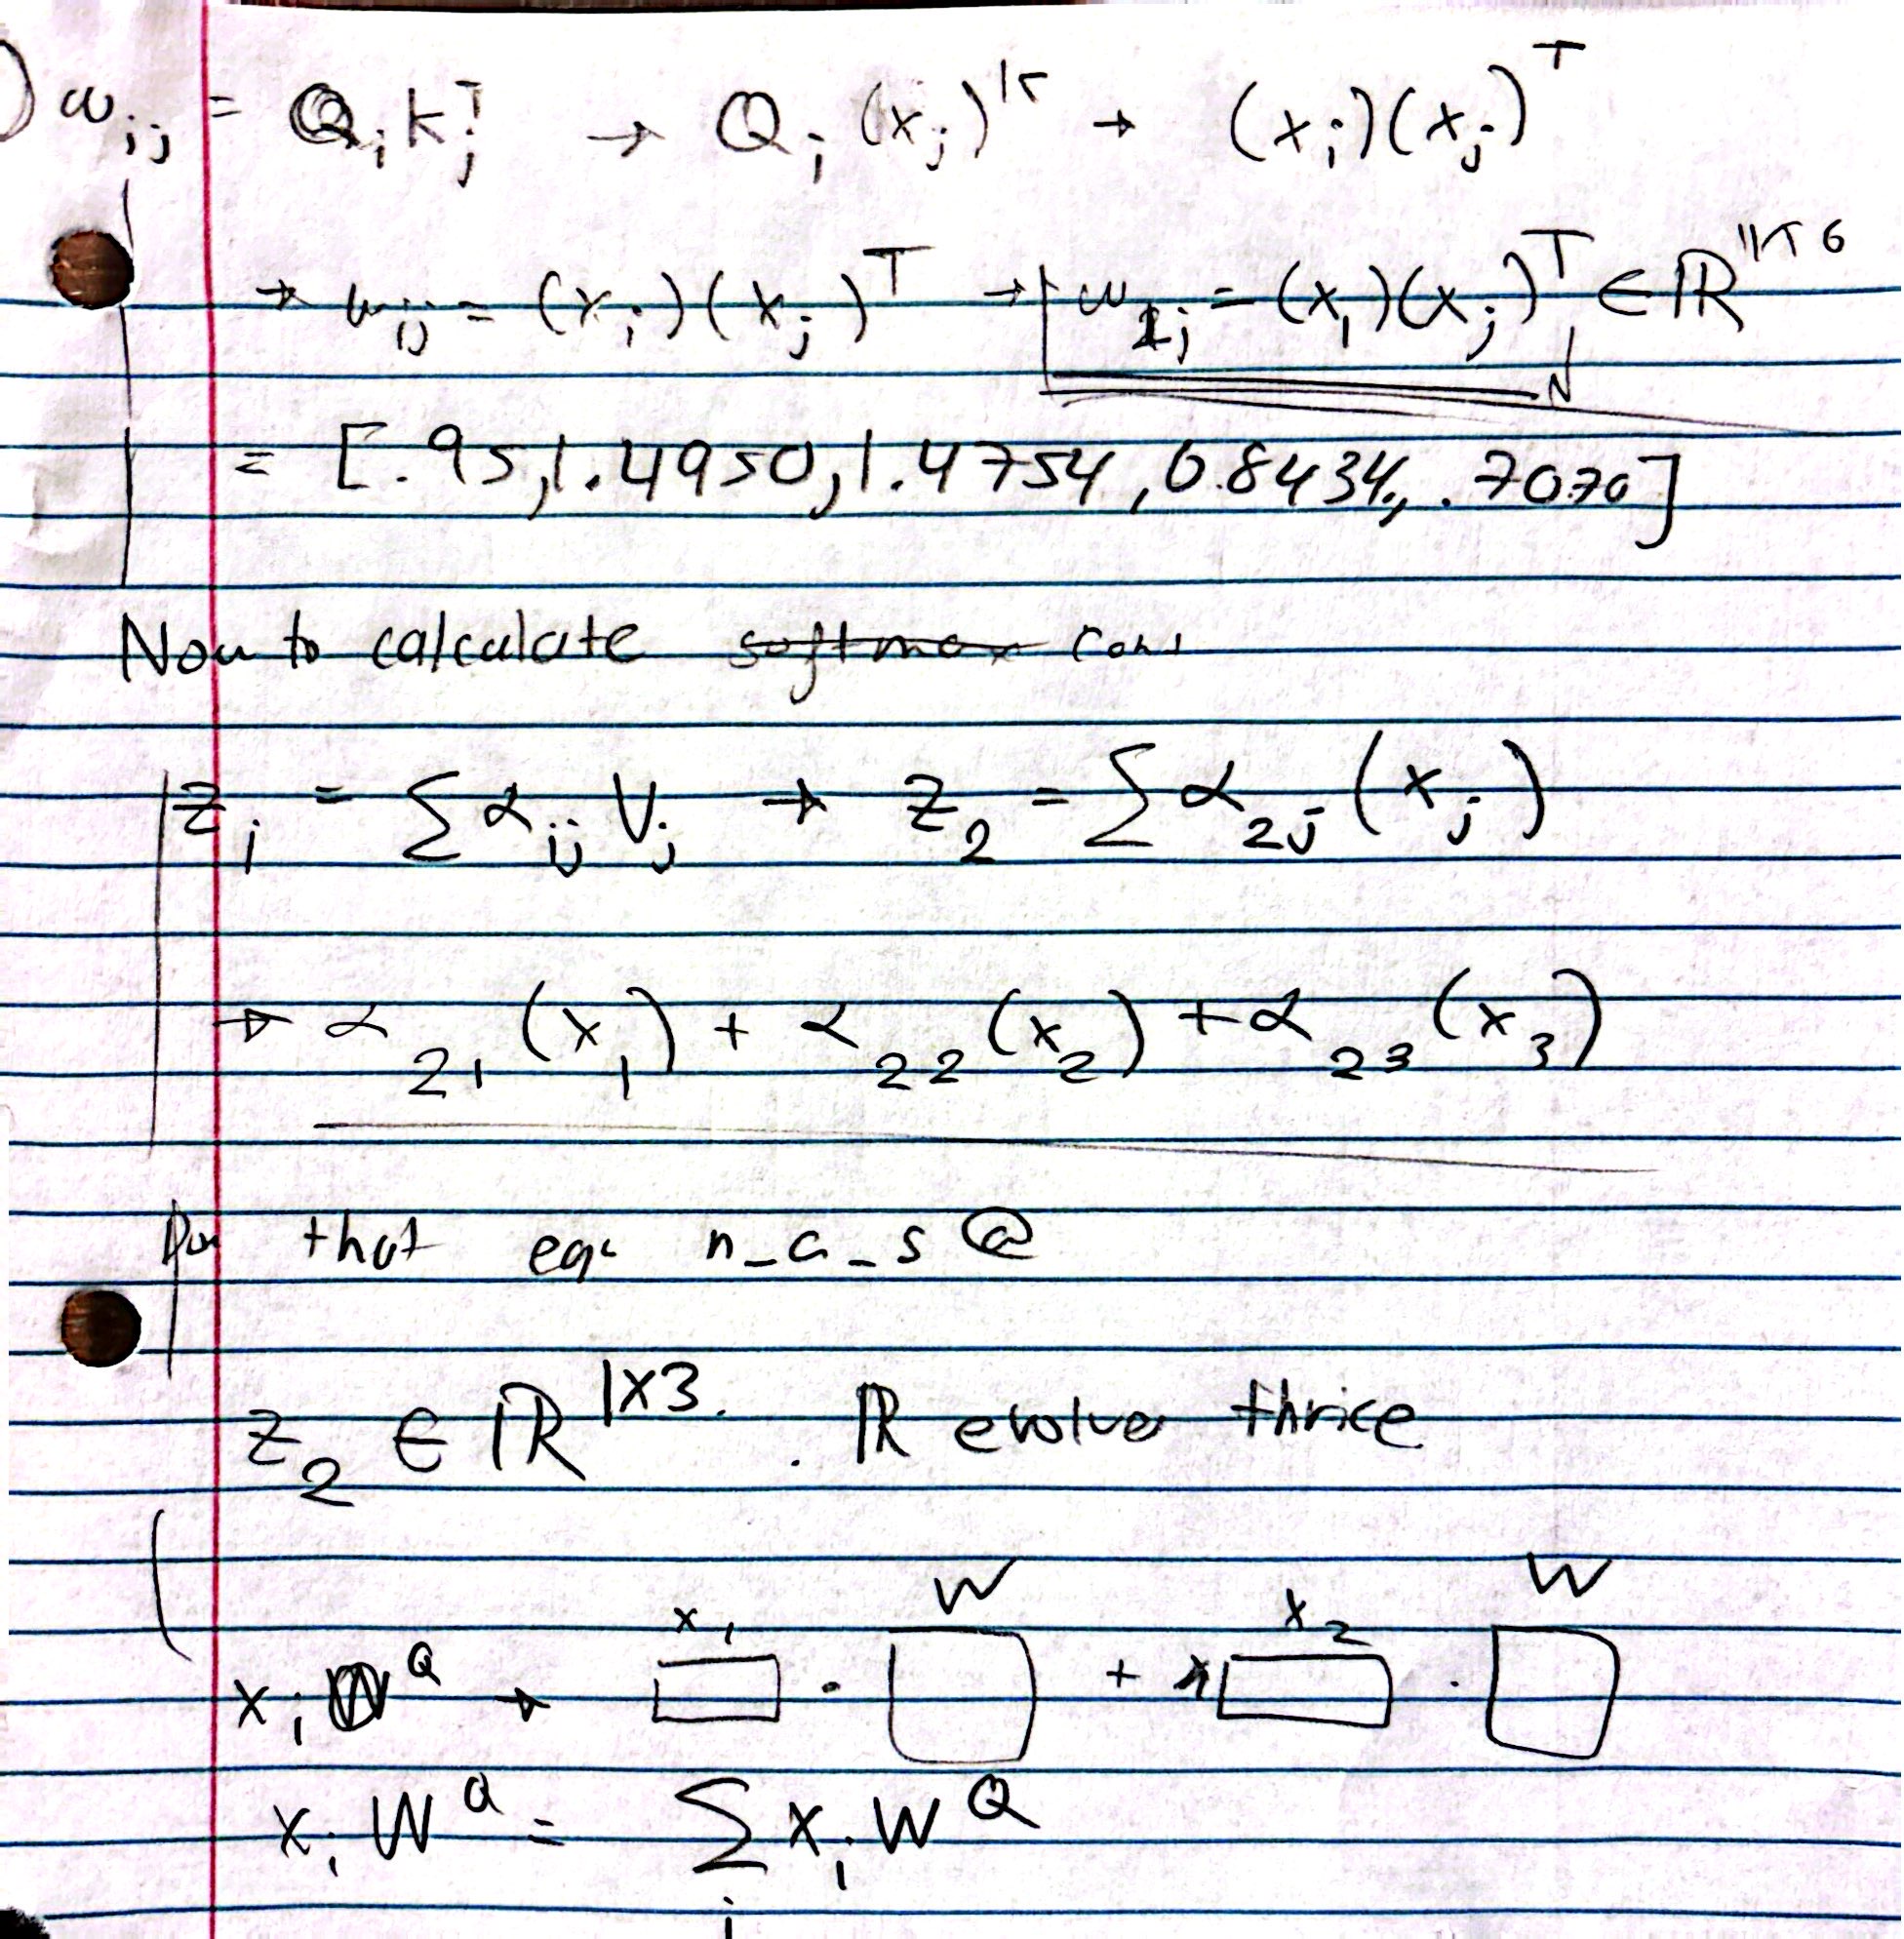 ω_ij = Q_i K_j^T → Q_i (x_j)^T → (x_i)(x_j)^T
→ ω_ij = (x_i)(x_j)^T → ω_2j = (x_i)(x_j)^T ∈ ℝ
= [.95, 1.4950, 1.4754, 0.8434, .7070]
Now to calculate softmax
z_i = Σ α_ij V_j → z_2 = Σ α_2j (x_j)
→ α_21 (x_1) + α_22 (x_2) + α_23 (x_3)
that n_a_s @
z_2 ∈ ℝ^1x3. ℝ evolves thrice
x_1 W x_2 W
x_i W^Q → · + ·
x_i W^Q = Σ_i x_i W^Q